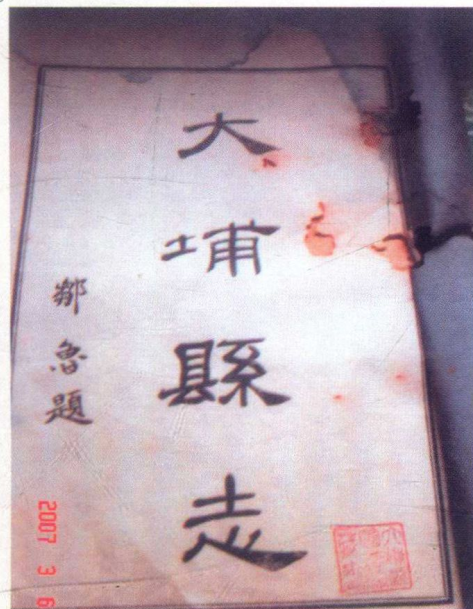 大埔縣志
鄒魯題
2007 3 6